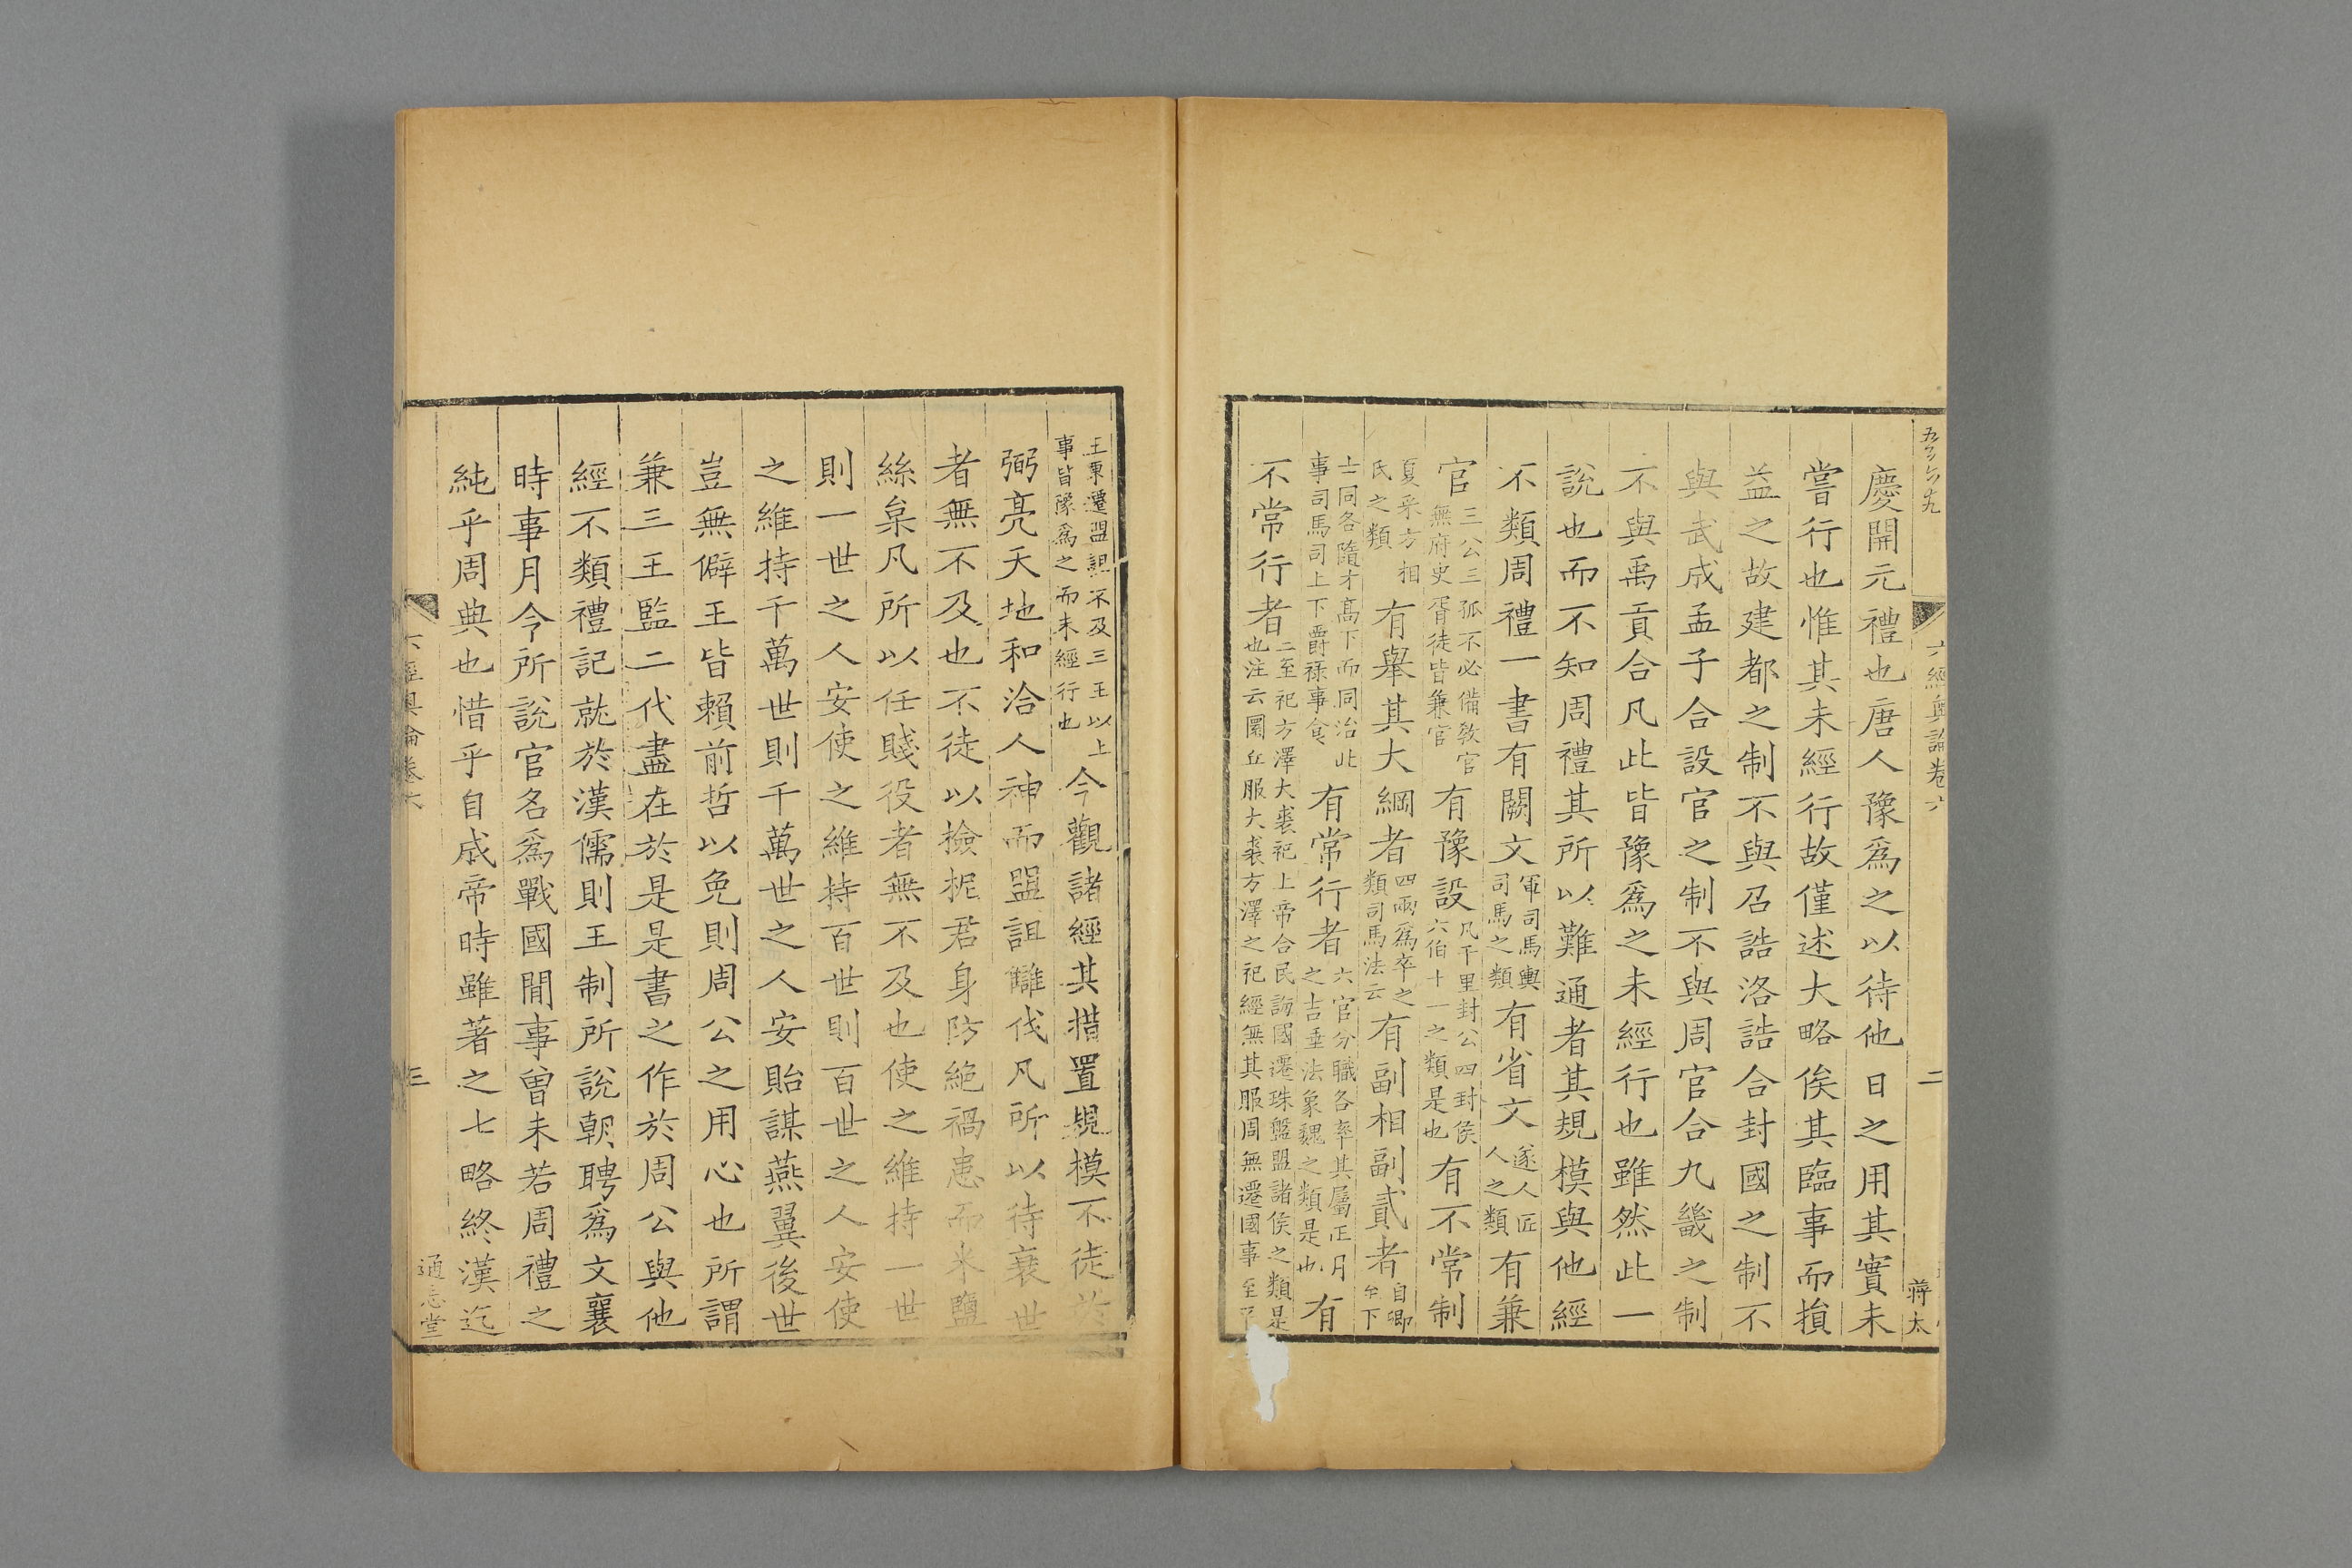 六經奧論卷六
二
蔣太
慶開元禮也唐人豫爲之以待他日之用其實未
嘗行也惟其未經行故僅述大略俟其臨事而損
益之故建都之制不與召誥洛誥合封國之制不
與武成孟子合設官之制不與周官合九畿之制
不與禹貢合凡此皆豫爲之未經行也雖然此一
說也而不知周禮其所以難通者其規模與他經
不類周禮一書有闕文軍司馬輿司馬之類有省文遂人匠人之類有兼
官三公三孤不必備敎官無府史胥徒皆兼官有豫設凡千里封公四封侯六伯十一之類是也有不常制
夏采方相氏之類有舉其大綱者四兩爲卒之類司馬法云有副相副貳者自卿至下
士同各隨才高下而同治此事司馬司上下爵祿事食有常行者六官分職各率其屬正月之吉垂法象魏之類是也有
不常行者二至祀方澤大裘祀上帝合民詢國遷珠盤盟諸侯之類是也注云圜丘服大裘方澤之祀經無其服周無遷國事至平
王東遷盟詛不及三王以上事皆豫爲之而未經行也今觀諸經其措置規模不徒於
弼亮天地和洽人神而盟詛讎伐凡所以待衰世
者無不及也不徒以檢柅君身防絕禍患而米鹽
絲枲凡所以任賤役者無不及也使之維持一世
則一世之人安使之維持百世則百世之人安使
之維持千萬世則千萬世之人安貽謀燕翼後世
豈無僻王皆賴前哲以免則周公之用心也所謂
兼三王監二代盡在於是是書之作於周公與他
經不類禮記就於漢儒則王制所說朝聘爲文襄
時事月令所說官名爲戰國閒事曾未若周禮之
純乎周典也惜乎自成帝時雖著之七略終漢迄
六經奧論卷六
三
通志堂